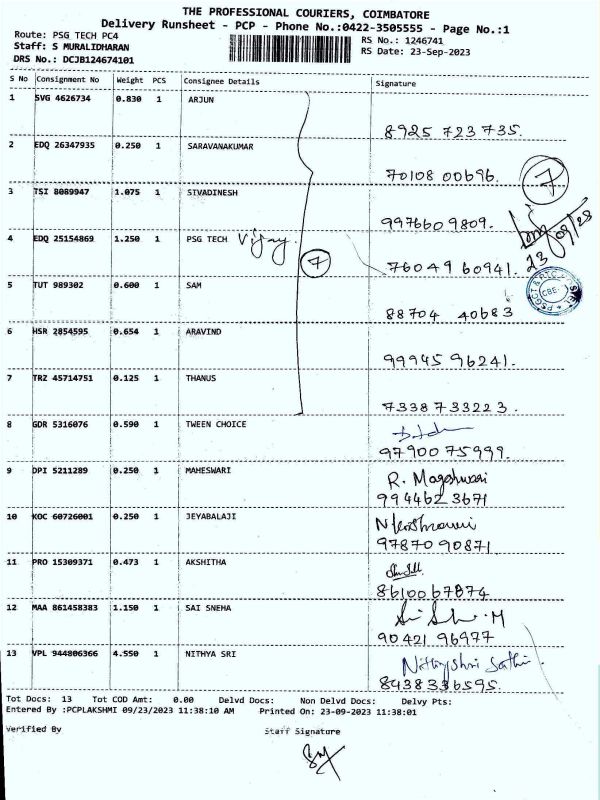 THE PROFESSIONAL COURIERS, COIMBATORE
Delivery Runsheet - PCP - Phone No.:0422-3505555 - Page No.:1
Route: PSG TECH PC4
RS No.: 1246741
Staff: S MURALIDHARAN
RS Date: 23-Sep-2023
DRS No.: DCJB124674101
S No Consignment No Weight PCS Consignee Details Signature
1 SVG 4626734 0.830 1 ARJUN
8925 723 735.
2 EDQ 26347935 0.250 1 SARAVANAKUMAR
70108 00696. 7
3 TSI 8089947 1.075 1 SIVADINESH
9976609809.
4 EDQ 25154869 1.250 1 PSG TECH Vijay.
7 76049 60941. 23/09/23
5 TUT 989302 0.600 1 SAM
88704 40683
CBE-
6 HSR 2854595 0.654 1 ARAVIND
99945 96241.
7 TRZ 45714751 0.125 1 THANUS
7338 733223.
8 GDR 5316076 0.590 1 TWEEN CHOICE
97900 75999.
9 DPI 5211289 0.250 1 MAHESWARI
R. Mageshwari
994462 3671
10 KOC 60726001 0.250 1 JEYABALAJI
97870 90871
11 PRO 15309371 0.473 1 AKSHITHA
8610067874
12 MAA 861458383 1.150 1 SAI SNEHA
90421 96977
13 VPL 944806366 4.550 1 NITHYA SRI
Nithyshri Sathi.
8438336595.
Tot Docs: 13 Tot COD Amt: 0.00 Delvd Docs: Non Delvd Docs: Delvy Pts:
Entered By :PCPLAKSHMI 09/23/2023 11:38:10 AM Printed On: 23-09-2023 11:38:01
Verified By Staff Signature